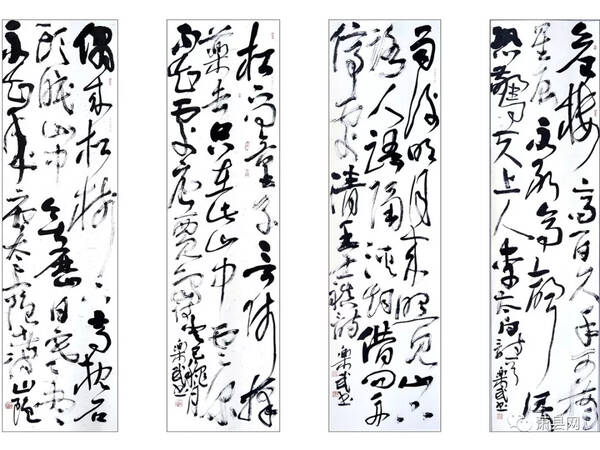 危樓高百尺手可摘
星辰不敢高聲語
恐驚天上人李太白詩
樂武書
雨後明月來照見山下
路人語隔溪烟借問舟
停處清王士禎詩
樂武書
松下問童子言師採
藥去只在此山中雲深
不知處
樂武書
偶來松樹下高枕石
頭眠山中無曆日寒盡
不知年
萧县网